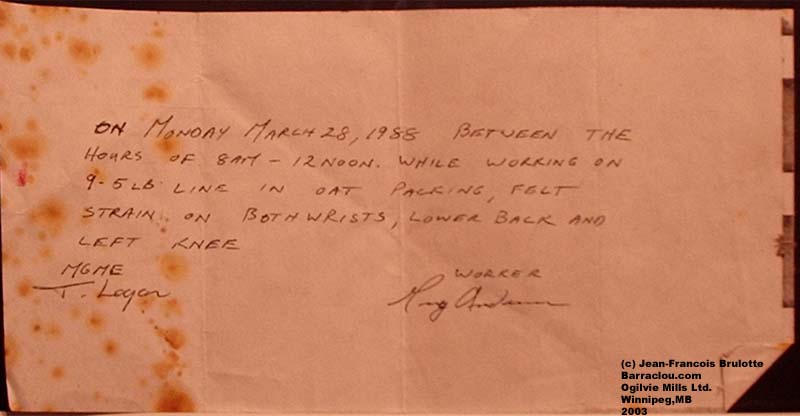 ON MONDAY MARCH 28, 1988 BETWEEN THE
HOURS OF 8AM - 12 NOON. WHILE WORKING ON
9-5 LB LINE IN OAT PACKING, FELT
STRAIN ON BOTH WRISTS, LOWER BACK AND
LEFT KNEE
MGME
T. Logan
WORKER
(c) Jean-Francois Brulotte
Barraclou.com
Ogilvie Mills Ltd.
Winnipeg,MB
2003